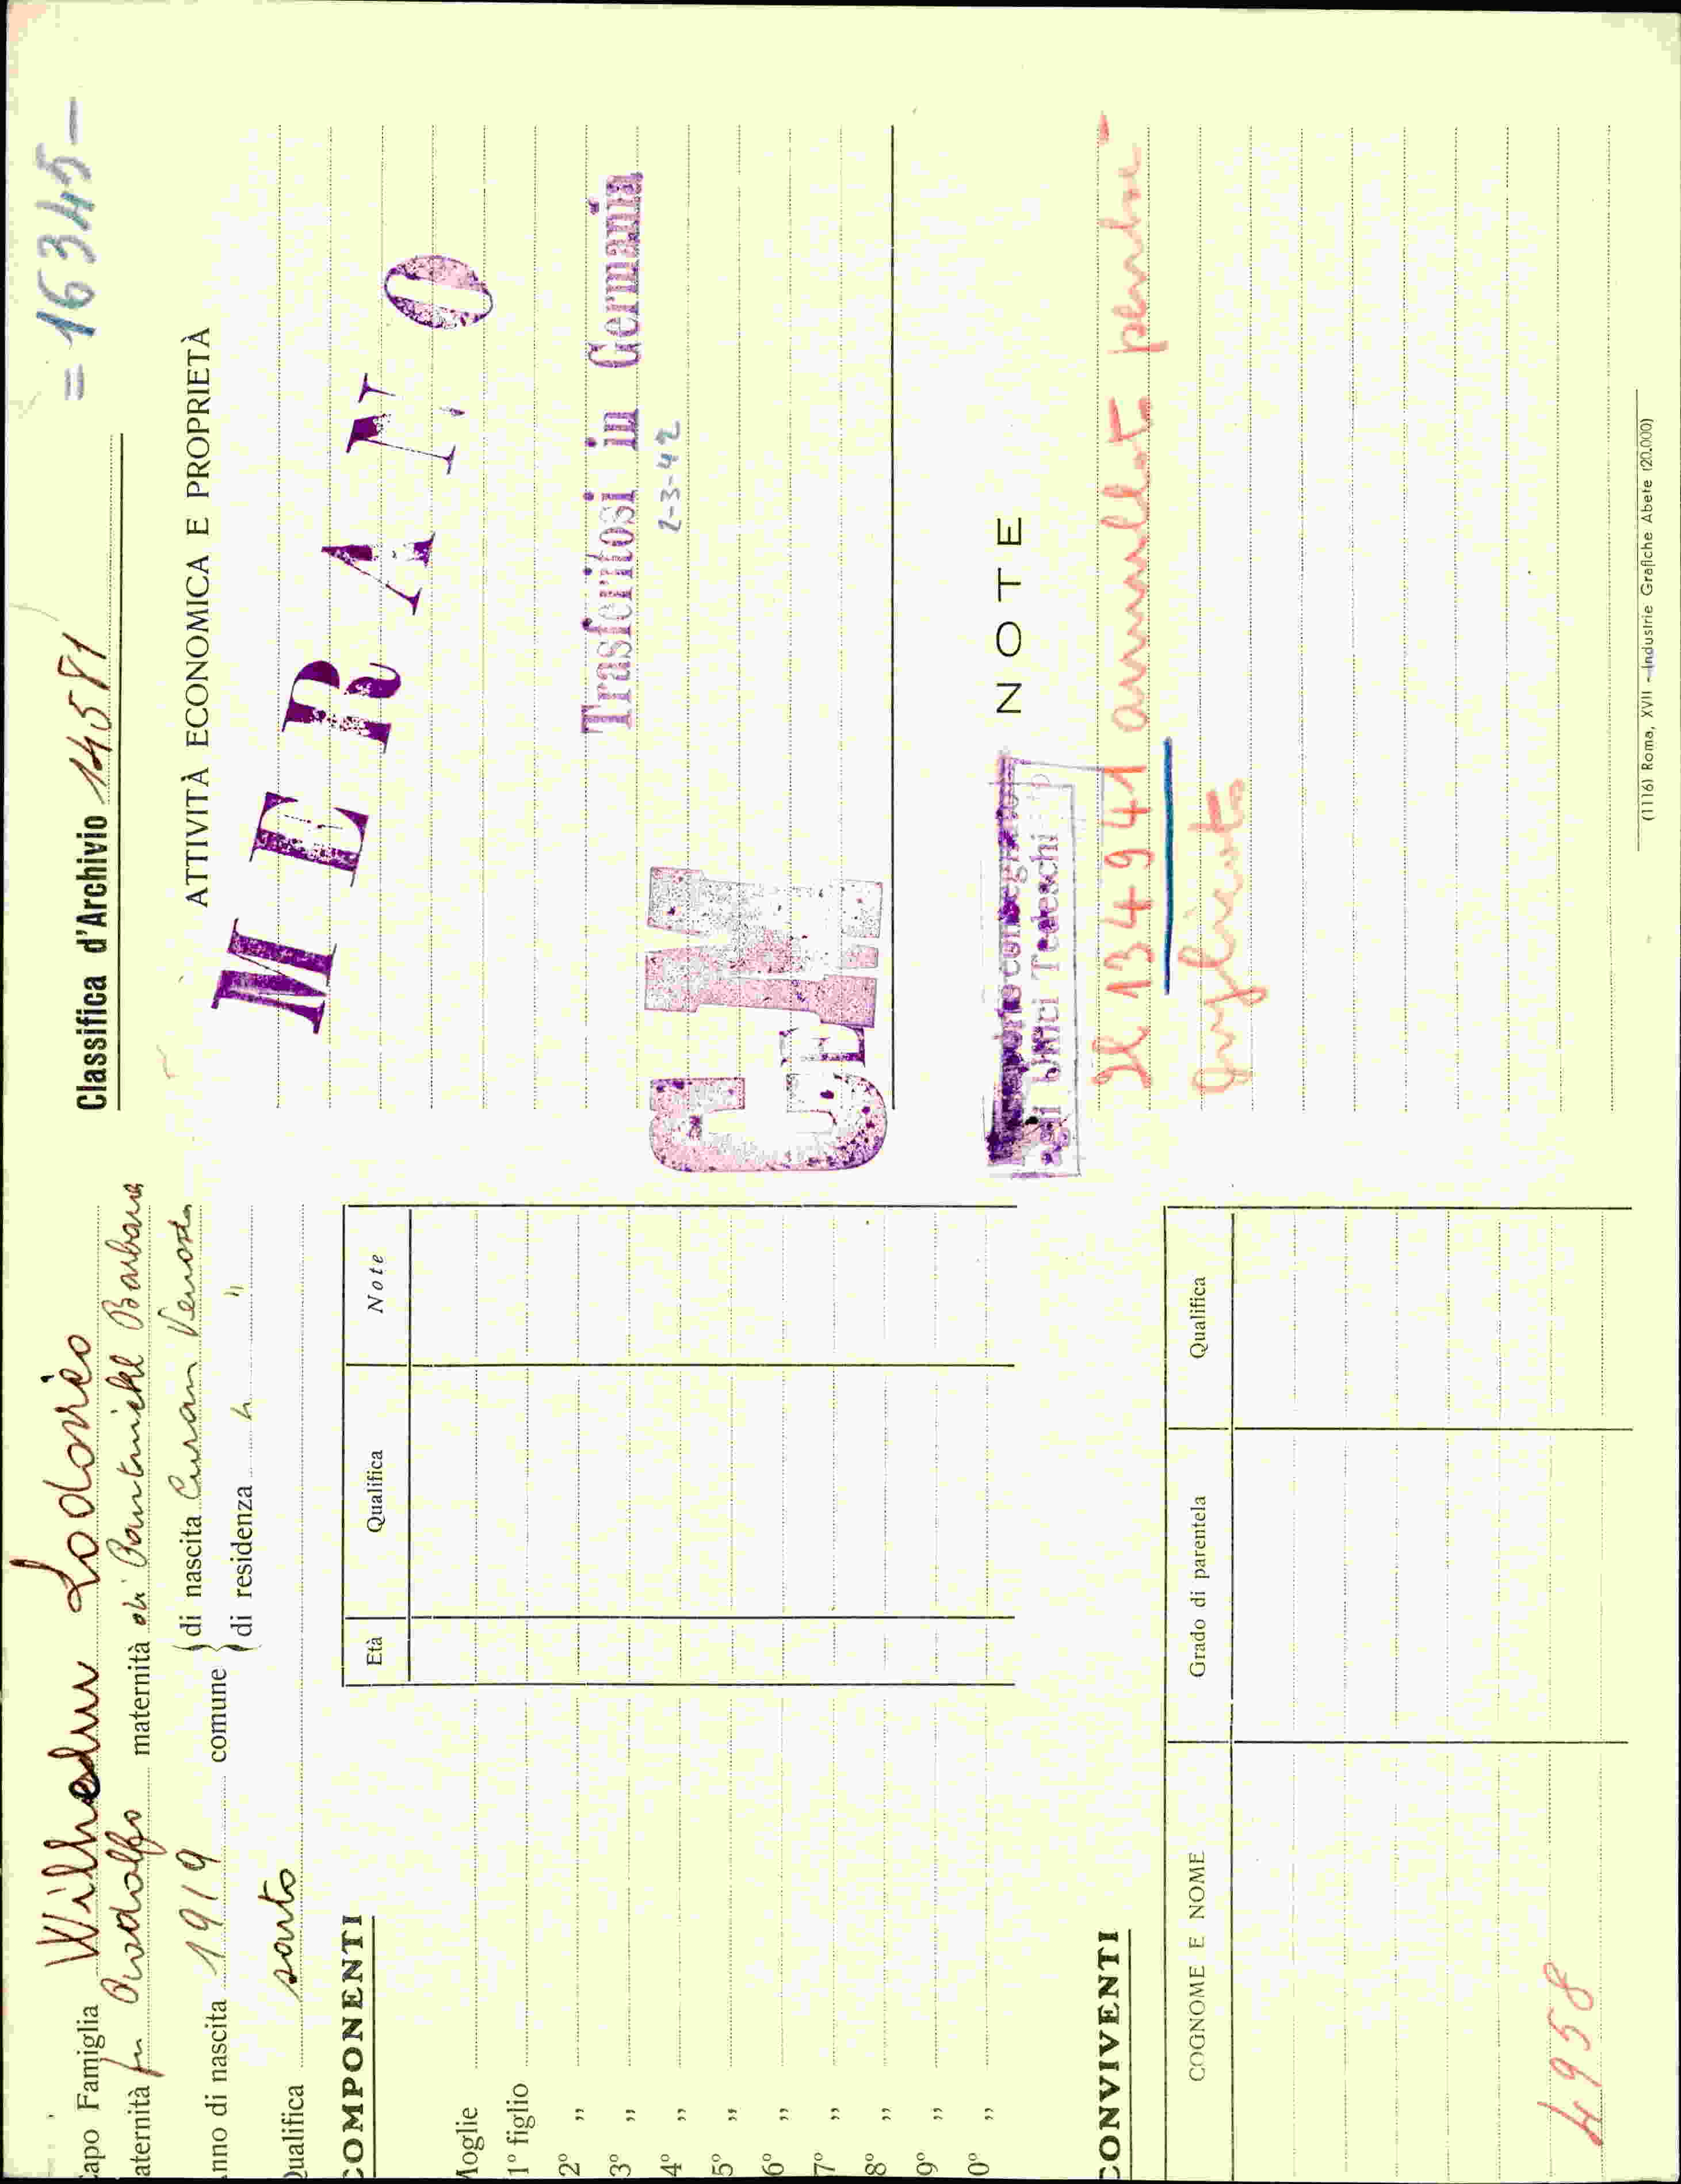 Capo Famiglia Wilhelm Lodovico
aternità fu Rodolfo maternità di Pantnickl Barbara
Anno di nascita 1919 comune { di nascita Curon Venosta
di residenza " "
Qualifica sarto
COMPONENTI
Età Qualifica Note
Moglie
1° figlio
2° "
3° "
4° "
5° "
6° "
7° "
8° "
9° "
0° "
CONVIVENTI
COGNOME E NOME Grado di parentela Qualifica
4958
= 16345 –
Classifica d'Archivio 14581
ATTIVITÀ ECONOMICA E PROPRIETÀ
MERANO
Trasferitosi in Germania
2-3-42
NOTE
consegnato
agli Uffici Tedeschi
Il 134941 annullato perché
(1116) Roma, XVII - Industrie Grafiche Abete (20.000)